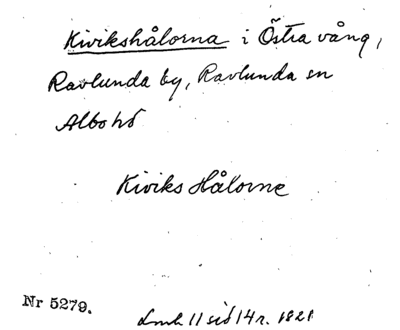 Kivikshålorna i Östra vång,
Ravlunda by, Ravlunda sn
Albo hd
Kiviks Hålorne
Nr 5279.
Lmh 11 sid 14 r. 1821